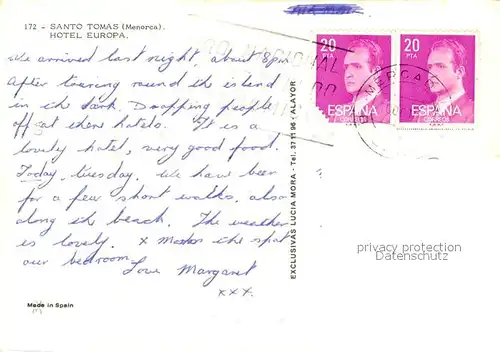 172 - SANTO TOMAS (Menorca).
HOTEL EUROPA.
We arrived last night, about 8pm
After touring round the island
in the dark. Dropping people
off at there hotels. It is a
lovely hotel, very good food.
Today, tuesday. We have been
for a few short walks, also
along the beach. The weather
is lovely. x Marks the spot
our bedroom. Love Margaret
xxx.
Made in Spain
EXCLUSIVAS LUCIA MORA - Tel. 371196 - ALAYOR
AIR MAIL
20
PTA
ESPAÑA
CORREOS
20
PTA
ESPAÑA
CORREOS
MERCAD
privacy protection
Datenschutz